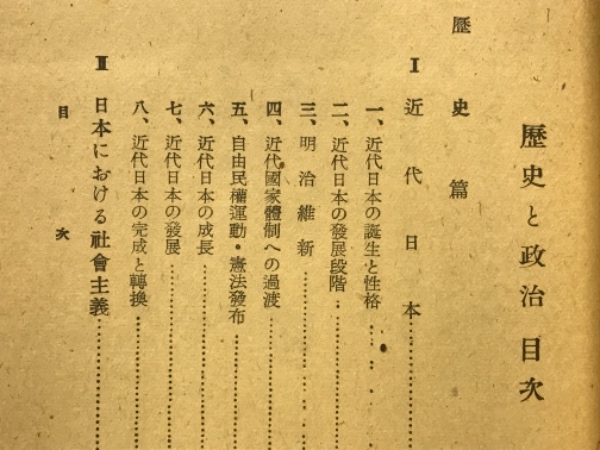 歷史と政治 目次
歷史篇
I 近代日本
一、近代日本の誕生と性格
二、近代日本の發展段階
三、明治維新
四、近代國家體制への過渡
五、自由民權運動・憲法發布
六、近代日本の成長
七、近代日本の發展
八、近代日本の完成と轉換
II 日本における社會主義
目次